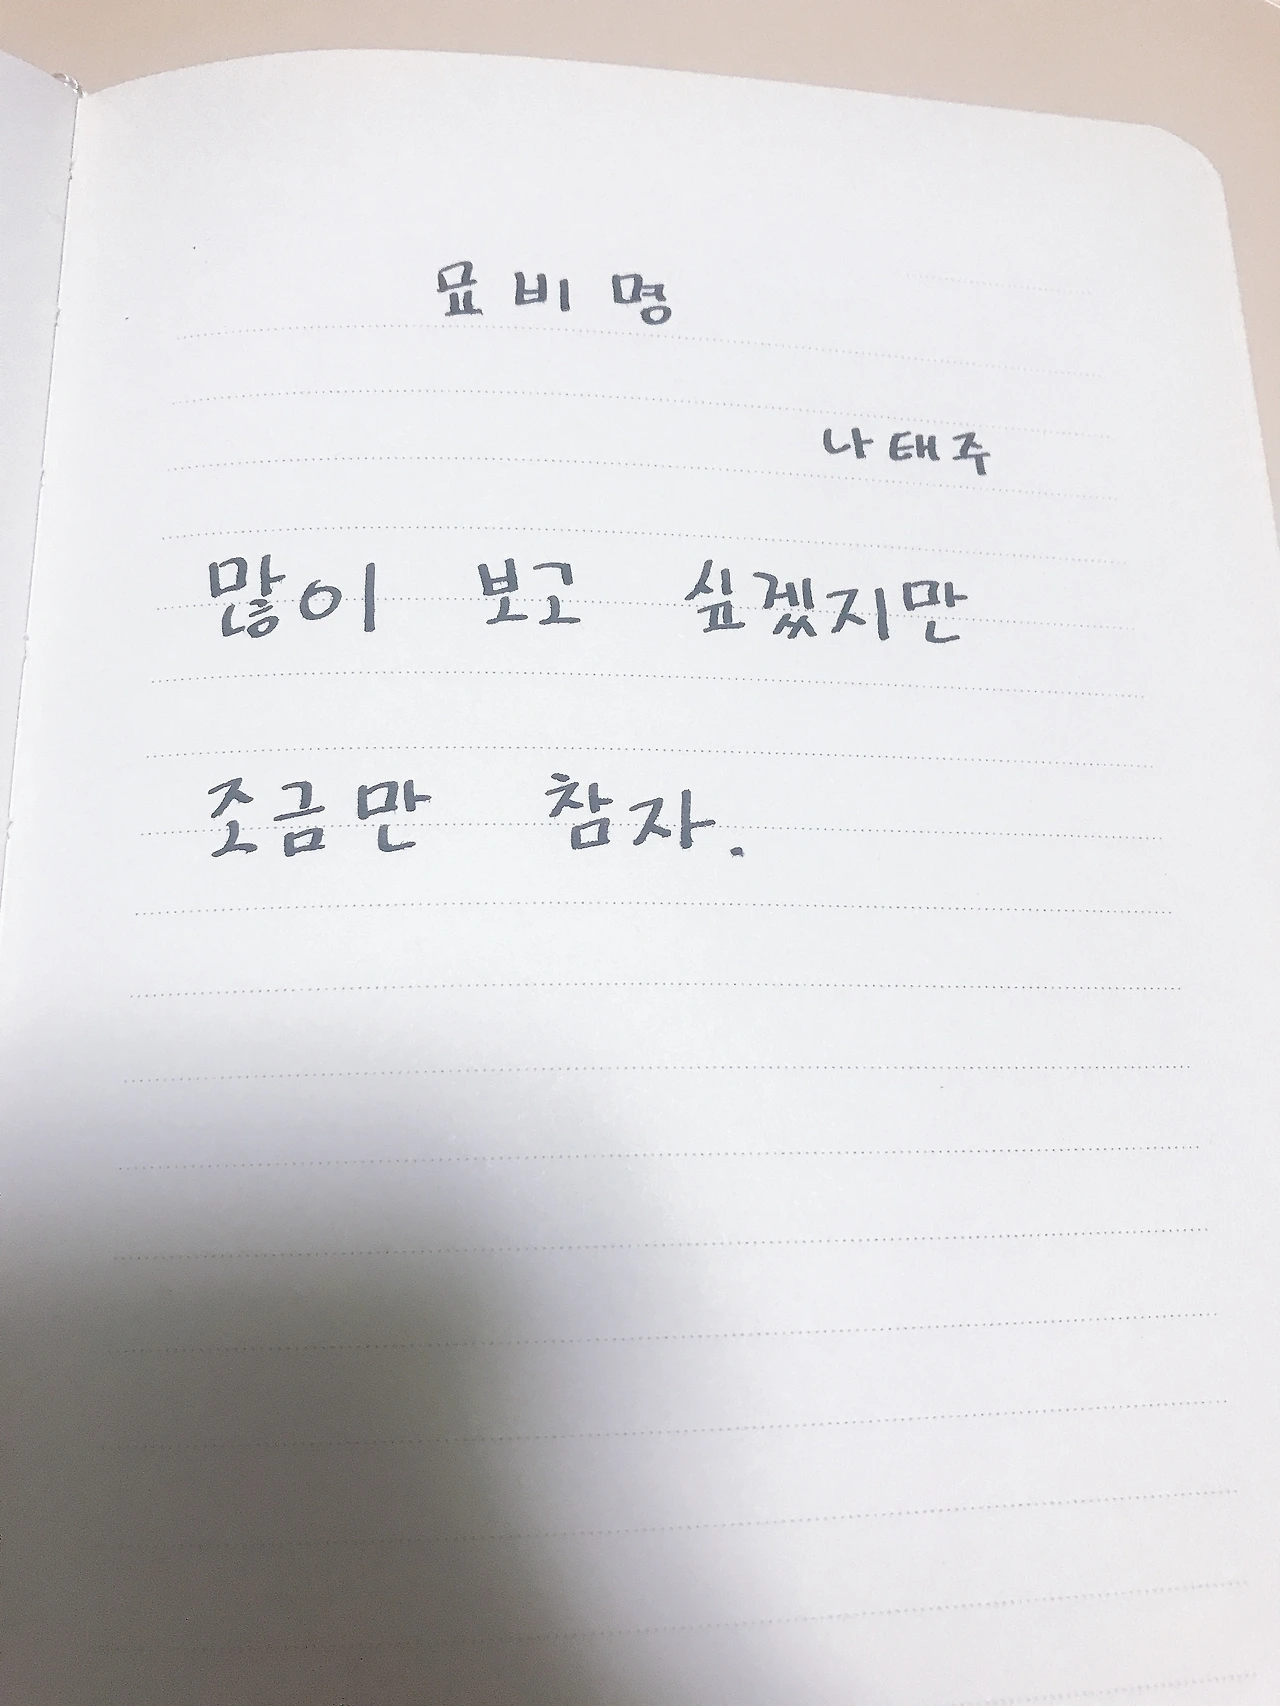 묘비명
나태주
많이 보고 싶겠지만
조금만 참자.